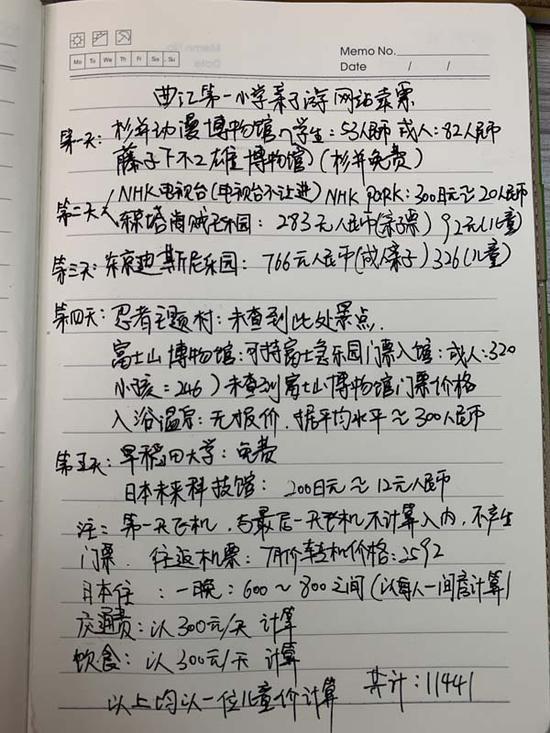 Memo No.
Mo Tu We Th Fr Sa Su
Date / /
曲江第一小学亲子游网站录票
第一天:杉并动漫博物馆 学生:53人民币 成人:82人民币
藤子不二雄博物馆)(杉并免费)
第二天 NHK电视台(电视台不让进) NHK PARK:300日元≈20人民币
东京塔海贼王乐园:283元人民币(亲子票) 92元(儿童)
第三天:东京迪斯尼乐园:766元人民币(成人亲子)326(儿童)
第四天:忍者主题村:未查到此处景点.
富士山博物馆:可持富士急乐园门票入馆:成人:320
小孩:246)未查到富士山博物馆门票价格
入浴温泉:无报价.据平均水平≈300人民币
第五天:早稻田大学:免费
日本未来科技馆:200日元≈12元人民币
注:第一天飞机,与最后一天飞机不计算入内,不产生
门票.往返机票:7月价转机价格:2592
日本住:一晚:600~800之间(以每人一间房计算)
交通费:以300元/天 计算
饮食:以300元/天 计算
以上均以一位儿童价计算 共计:11441